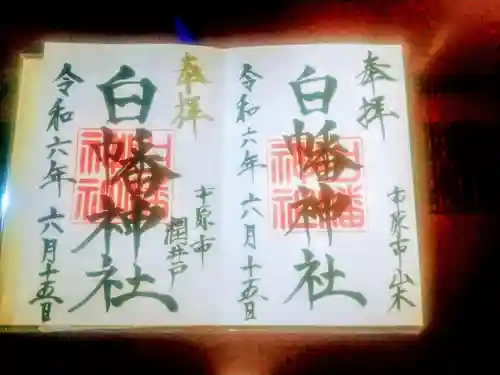 奉拝
市原市 山木
白幡神社
令和六年 六月十五日
奉拝
市原市
潤井戸
白幡神社
令和六年 六月十五日